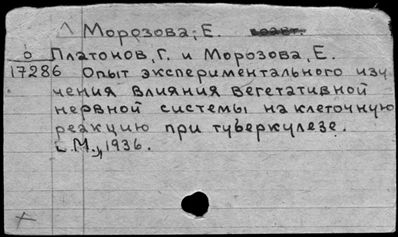 Морозова, Е. соавт.
о Платонов, Г. и Морозова, Е.
17286 Опыт экспериментального изу
чения влияния вегетативной
нервной системы на клеточную
реакцию при туберкулезе.
М., 1936.